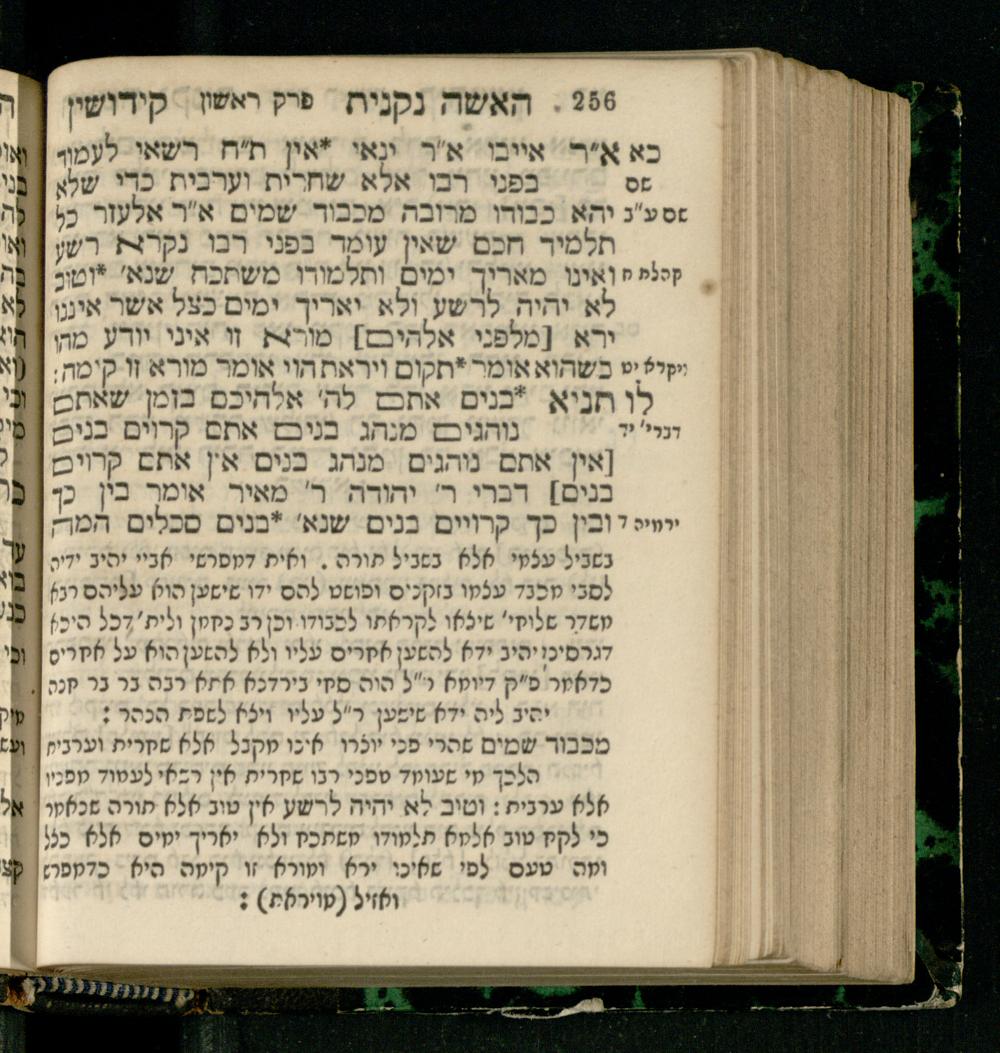 256 . האשה נקנית פרק ראשון קידושין
כא א״ר אייבו א״ר ינאי *אין ת״ח רשאי לעמוד
שם בפני רבו אלא שחרית וערבית כדי שלא
שם ע״ב יהא כבודו מרובה מכבוד שמים א״ר אלעזר כל
תלמיד חכם שאין עומד בפני רבו נקרא רשע
קהלת ח ואינו מאריך ימים ותלמודו משתכח שנא׳ *וטוב
לא יהיה לרשע ולא יאריך ימים כצל אשר איננו
ירא [מלפני אלהים] מורא זו איני יודע מהו
ויקרא יט כשהוא אומר *תקום ויראת הוי אומר מורא זו קימה:
לו תניא *בנים אתם לה׳ אלהיכם בזמן שאתם
דברי׳ יד נוהגים מנהג בנים אתם קרוים בנים
[אין אתם נוהגים מנהג בנים אין אתם קרוים
בנים] דברי ר׳ יהודה ר׳ מאיר אומר בין כך
ירמיה ד ובין כך קרויים בנים שנא׳ *בנים סכלים המה
בשביל עצמי אלא בשביל תורה . ואית דמפרשי אביי יהיב ידיה
לסבי מכבד עצמו בזקנים ופושט להם ידו שישען הוא עליהם רבא
משדר שלוחי׳ שיצאו לקראתו לכבודו וכן רב נחמן ולית׳ דכל היכא
דגרסינן יהיב ידא להשען אחרים עליו ולא להשען הוא על אחרים
כדאמר פ״ק דיומא ר״ל הוה סחי בירדנא אתא רבה בר בר חנה
יהיב ליה ידא שישען ר״ל עליו ויצא לשפת הנהר :
מכבוד שמים שהרי פני יוצרו אינו מקבל אלא שחרית וערבית
הלכך מי שעומד מפני רבו שחרית אין רשאי לעמוד מפניו
אלא ערבית : וטוב לא יהיה לרשע אין טוב אלא תורה שנאמר
כי לקח טוב אלמא תלמודו משתכח ולא יאריך ימים אלא כצל
ומה טעם לפי שאינו ירא ומורא זו קימה היא כדמפרש
ואזיל (מויראת) :